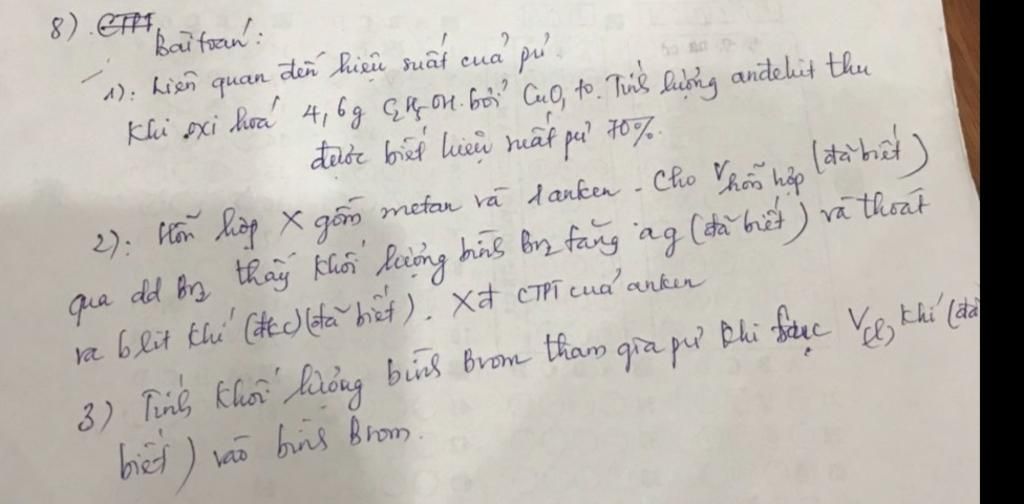 8). CTPT
Bài toán:
1): Liên quan đến hiệu suất của pứ.
Khi oxi hoá 4,6g C2H5OH bởi CuO, to. Tính lượng anđehit thu
được biết hiệu suất pứ 70%.
2): Hỗn hợp X gồm metan và 1 anken - Cho Vhỗn hợp (đã biết)
qua dd Br2 thấy khối lượng bình Br2 tăng ag (đã biết) và thoát
ra b lít khí (đkc) (đã biết). Xđ CTPT của anken
3) Tính khối lượng bình Brom tham gia pứ khi sục V khí (đã
biết) vào bình Brom.